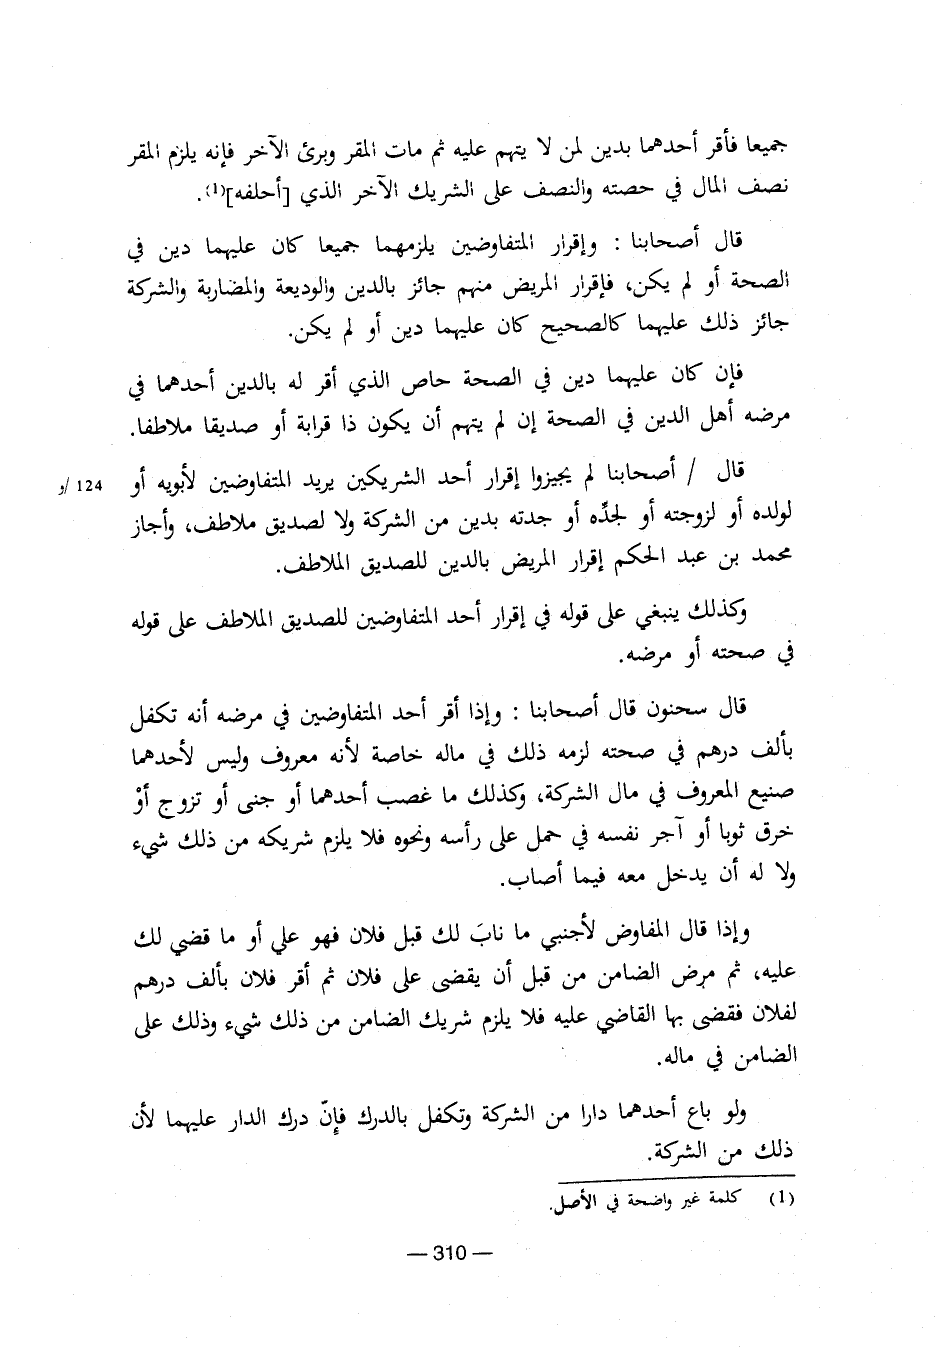 جميعا فأقر أحدهما بدين لمن لا يتهم عليه ثم مات المقر وبرئ الآخر فإنه يلزم المقر
نصف المال في حصته والنصف على الشريك الآخر الذي [أحلفه](1).
قال أصحابنا : وإقرار المتفاوضين يلزمهما جميعا كان عليهما دين في
الصحة أو لم يكن، فإقرار المريض منهم جائز بالدين والوديعة والمضاربة والشركة
جائز ذلك عليهما كالصحيح كان عليهما دين أو لم يكن.
فإن كان عليهما دين في الصحة حاص الذي أقر له بالدين أحدهما في
مرضه أهل الدين في الصحة إن لم يتهم أن يكون ذا قرابة أو صديقا ملاطفا.
قال / أصحابنا لم يجيزوا إقرار أحد الشريكين يريد المتفاوضين لأبويه أو
124 /و
لولده أو لزوجته أو لجدِّه أو جدته بدين من الشركة ولا لصديق ملاطف، وأجاز
محمد بن عبد الحكم إقرار المريض بالدين للصديق الملاطف.
وكذلك ينبغي على قوله في إقرار أحد المتفاوضين للصديق الملاطف على قوله
في صحته أو مرضه.
قال سحنون قال أصحابنا : وإذا أقر أحد المتفاوضين في مرضه أنه تكفل
بألف درهم في صحته لزمه ذلك في ماله خاصة لأنه معروف وليس لأحدهما
صنيع المعروف في مال الشركة، وكذلك ما غصب أحدهما أو جنى أو تزوج أوْ
خرق ثوبا أو آجر نفسه في حمل على رأسه ونحوه فلا يلزم شريكه من ذلك شيء
ولا له أن يدخل معه فيما أصاب.
وإذا قال المفاوض لأجنبي ما نابَ لك قبل فلان فهو علي أو ما قضي لك
عليه، ثم مرض الضامن من قبل أن يقضى على فلان ثم أقر فلان بألف درهم
لفلان فقضى بها القاضي عليه فلا يلزم شريك الضامن من ذلك شيء وذلك على
الضامن في ماله.
ولو باع أحدهما دارا من الشركة وتكفل بالدرك فإنّ درك الدار عليهما لأن
ذلك من الشركة.
(1) كلمة غير واضحة في الأصل.
— 310 —